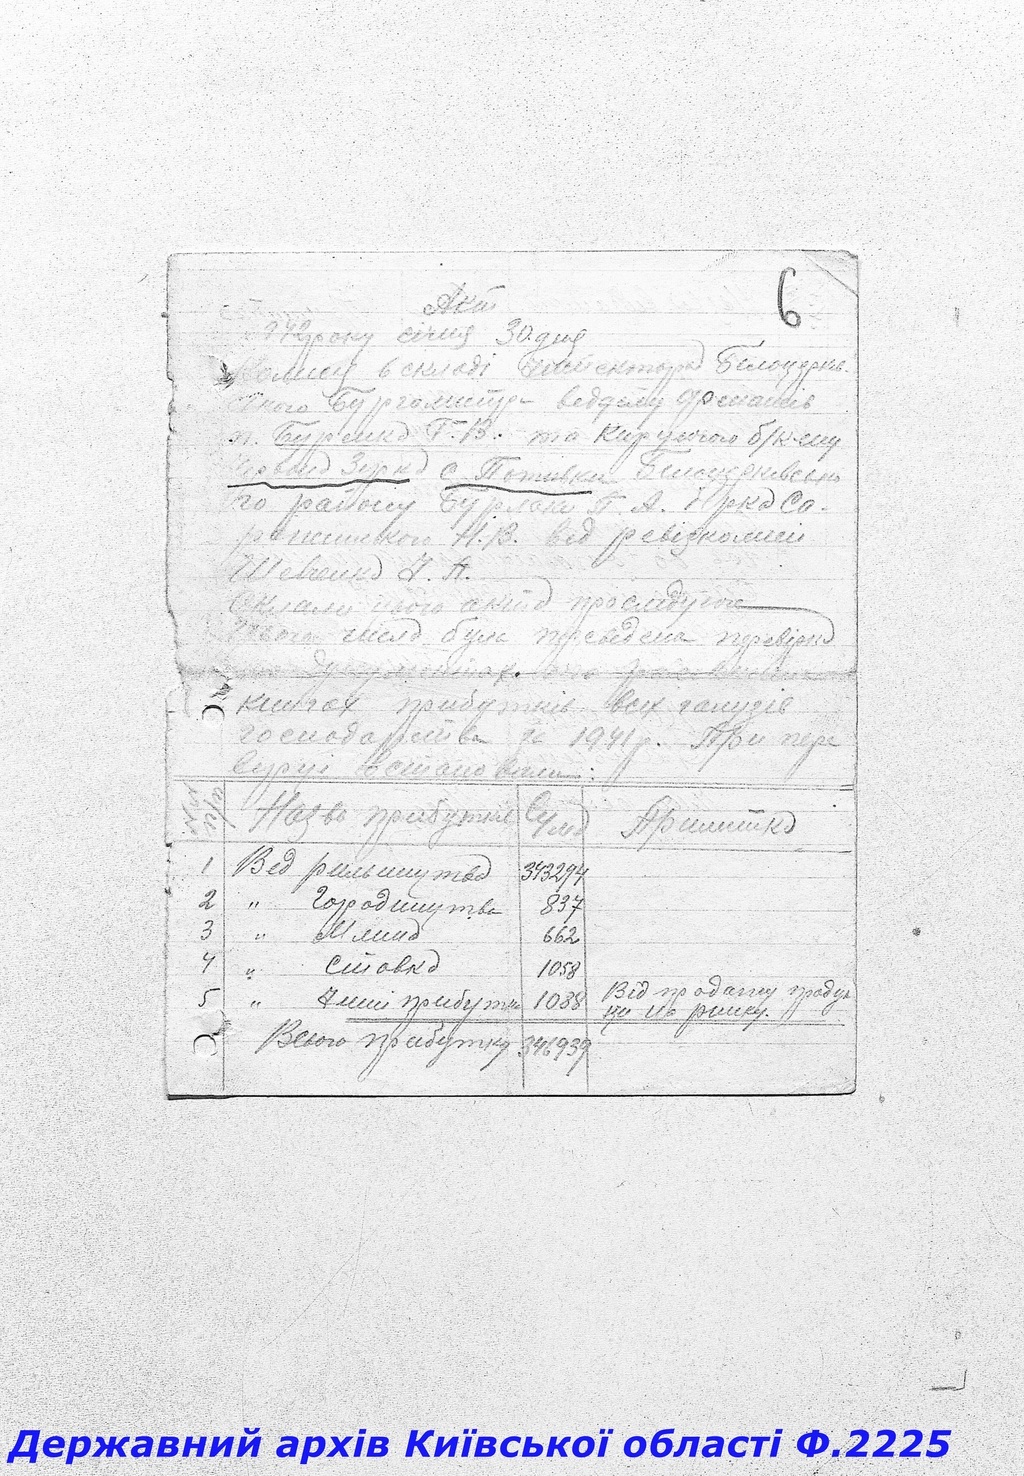 6
Акт
1942 року січня 30 дня
Комісія в складі Білоцерків-
ського Бургомістра відділу фінансів
п. Бурейко Г. В. та Керуючого б/к-му
с Потіївки Білоцерківсько
го району Бурлаки Г. А.
Н. В. від ревізкомісії
Шевченко
Склали цього акта про слідуюче
числа була переведена перевірка
по документах. та
книгах прибутків всіх галузів
господарства за 1941 р. При пере
вірці встановили:
№№ п/п Назва прибутків Сума Примітка
1 Від рільництва 343294
2 " Городництва 837
3 " Млина 662
4 " Ставка 1058
5 " Інші прибутки 1088 Від продажу продук
ці на ринку.
Всього прибутку 346939
Державний архів Київської області Ф.2225